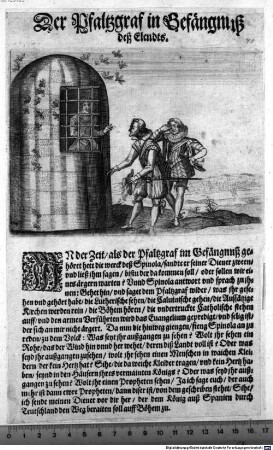 Der Pfaltzgraf in Gefängnuß
deß Elendts.
IN der Zeit / als der Pfaltzgraf im Gefängnuß ge-
höret hett die werck deß Spinola / sandte er seiner Diener zween /
vnd ließ ihm sagen / bistu der da kommen soll / oder sollen wir ei-
nes andern warten? Vnnd Spinola antwort vnd sprach zu ih-
nen: Gehet hin / vnd saget dem Pfaltzgraf wider / was ihr gese-
hen vnd gehört habt / die Lutherische sehen / die Caluinische gehen / die Außsätzige
Kirchen werden rein / die Böhmen hören / die vndertruckte Catholische stehen
auff / vnd den armen Verführten wird das Euangelium geprediget / vnd selig ist /
der sich an mir nicht ärgert. Da nun die hinweg giengen / fieng Spinola an zu
reden / zu dem Volck: Was seyt ihr außgangen zu sehen? Wolt ihr sehen ein
Rohr / das der Wind hin vnnd her wehet / deren diß Landt voll ist? Oder was
seyd ihr außgangen zu sehen / wolt ihr sehen einen Menschen in waichen Klei-
dern der kein Hertz hat? Sihe / die da weiche Kleider tragen / vnd kein Hertz ha-
ben / seynd in den Häusern ihres vermainten Königs? Oder was seyd ihr auß-
gangen zu sehen? Wolt ihr einen Propheten sehen / Ja ich sage euch / der auch
mehr ist dann ein Prophet / dann diser ist / von dem geschriben stehet: Sihe /
ich sende meinen Diener vor dir her / der dem König auß Spanien durch
Teutschland den Weg beraiten soll auff Böhem zu.
0 1 2 3 4 5 6 7 8 9 10 11 12 13 14 15 16 17